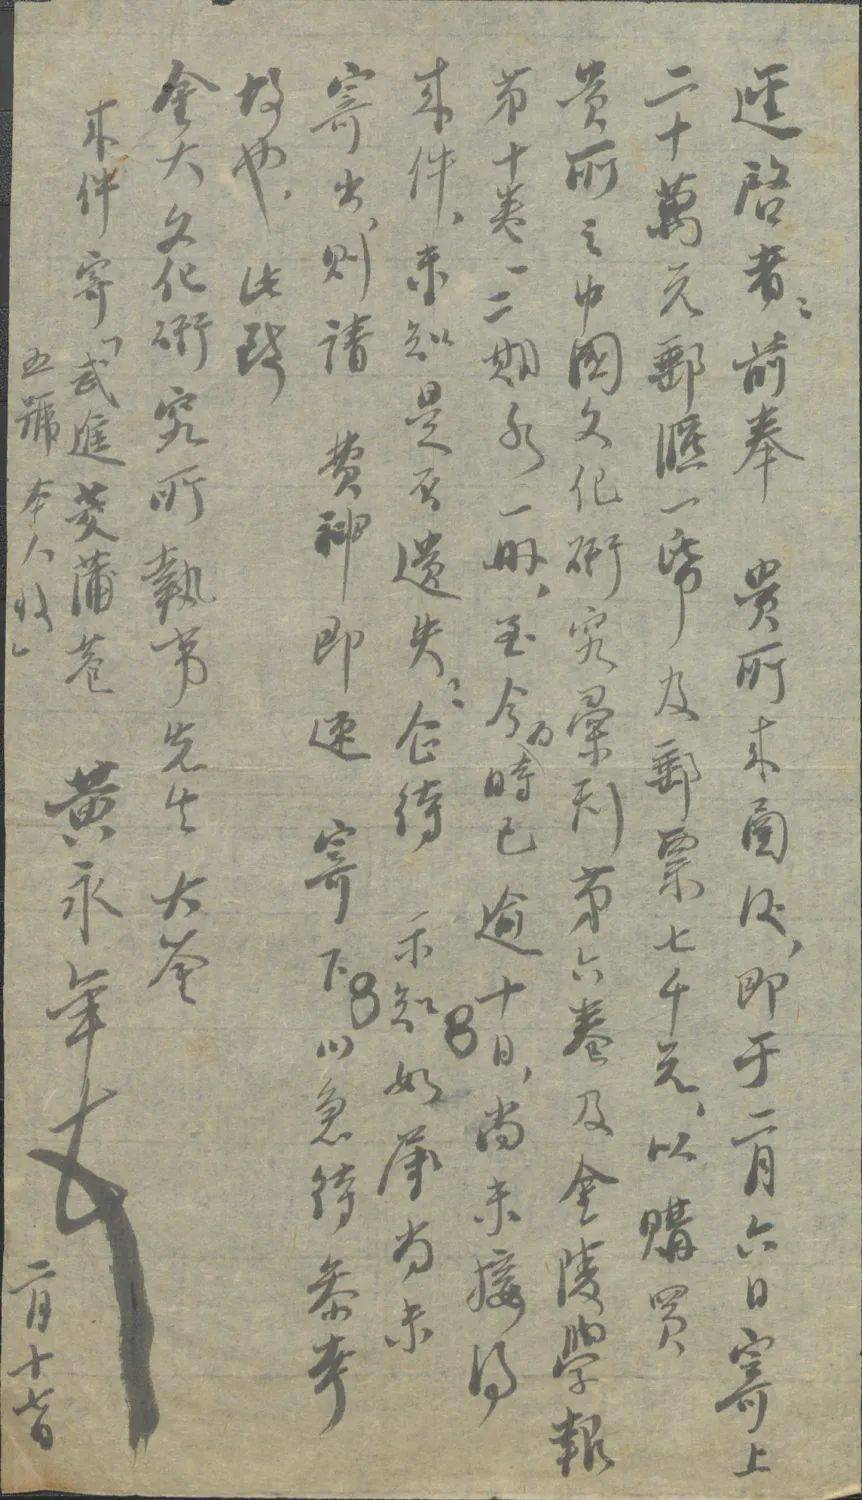 逕啓者:前奉 貴所來函後,即于二月六日寄上
二十萬元郵匯一帋及郵票七千元,以購買
貴所之中國文化研究彙刊第六卷及金陵學報
第十卷一二期各一册,至今爲時已逾十日,尚未接得
來件,未知是否遺失:企待 示知如屬尚未
寄出,則請 費神即速 寄下以急待參考
故也,此致
金大文化研究所執事先生 大鑒
來件寄「武進茭蒲巷
五號 本人收」
黄永年
二月十七日